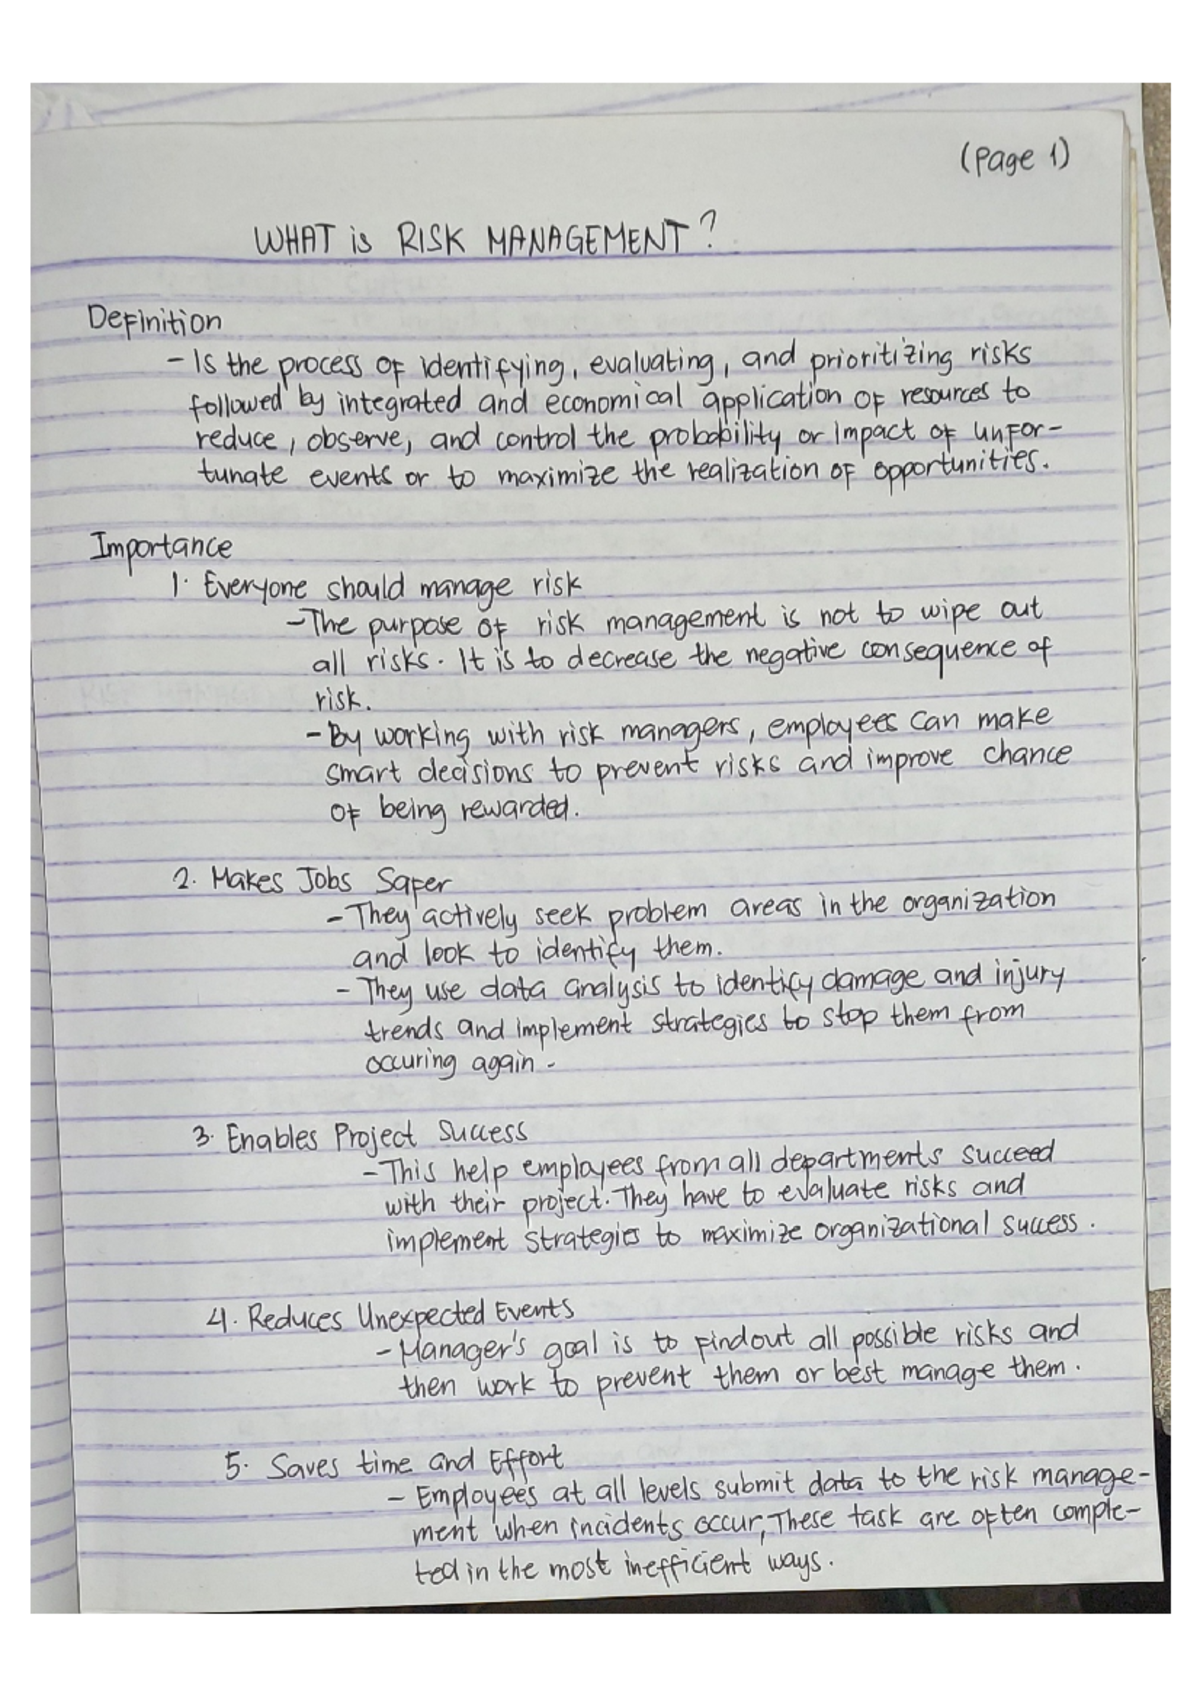 (Page 1)
WHAT is RISK MANAGEMENT?
Definition
- Is the process of identifying, evaluating, and prioritizing risks
followed by integrated and economical application of resources to
reduce, observe, and control the probability or impact of unfor-
tunate events or to maximize the realization of opportunities.
Importance
1. Everyone should manage risk
- The purpose of risk management is not to wipe out
all risks. It is to decrease the negative consequence of
risk.
- By working with risk managers, employees can make
smart decisions to prevent risks and improve chance
of being rewarded.
2. Makes Jobs Safer
- They actively seek problem areas in the organization
and look to identify them.
- They use data analysis to identify damage and injury
trends and implement strategies to stop them from
occuring again -
3. Enables Project Success
- This help employees from all departments succeed
with their project. They have to evaluate risks and
implement strategies to maximize organizational success.
4. Reduces Unexpected Events
- Manager's goal is to findout all possible risks and
then work to prevent them or best manage them.
5. Saves time and Effort
- Employees at all levels submit data to the risk manage-
ment when incidents occur, These task are often comple-
ted in the most inefficient ways.